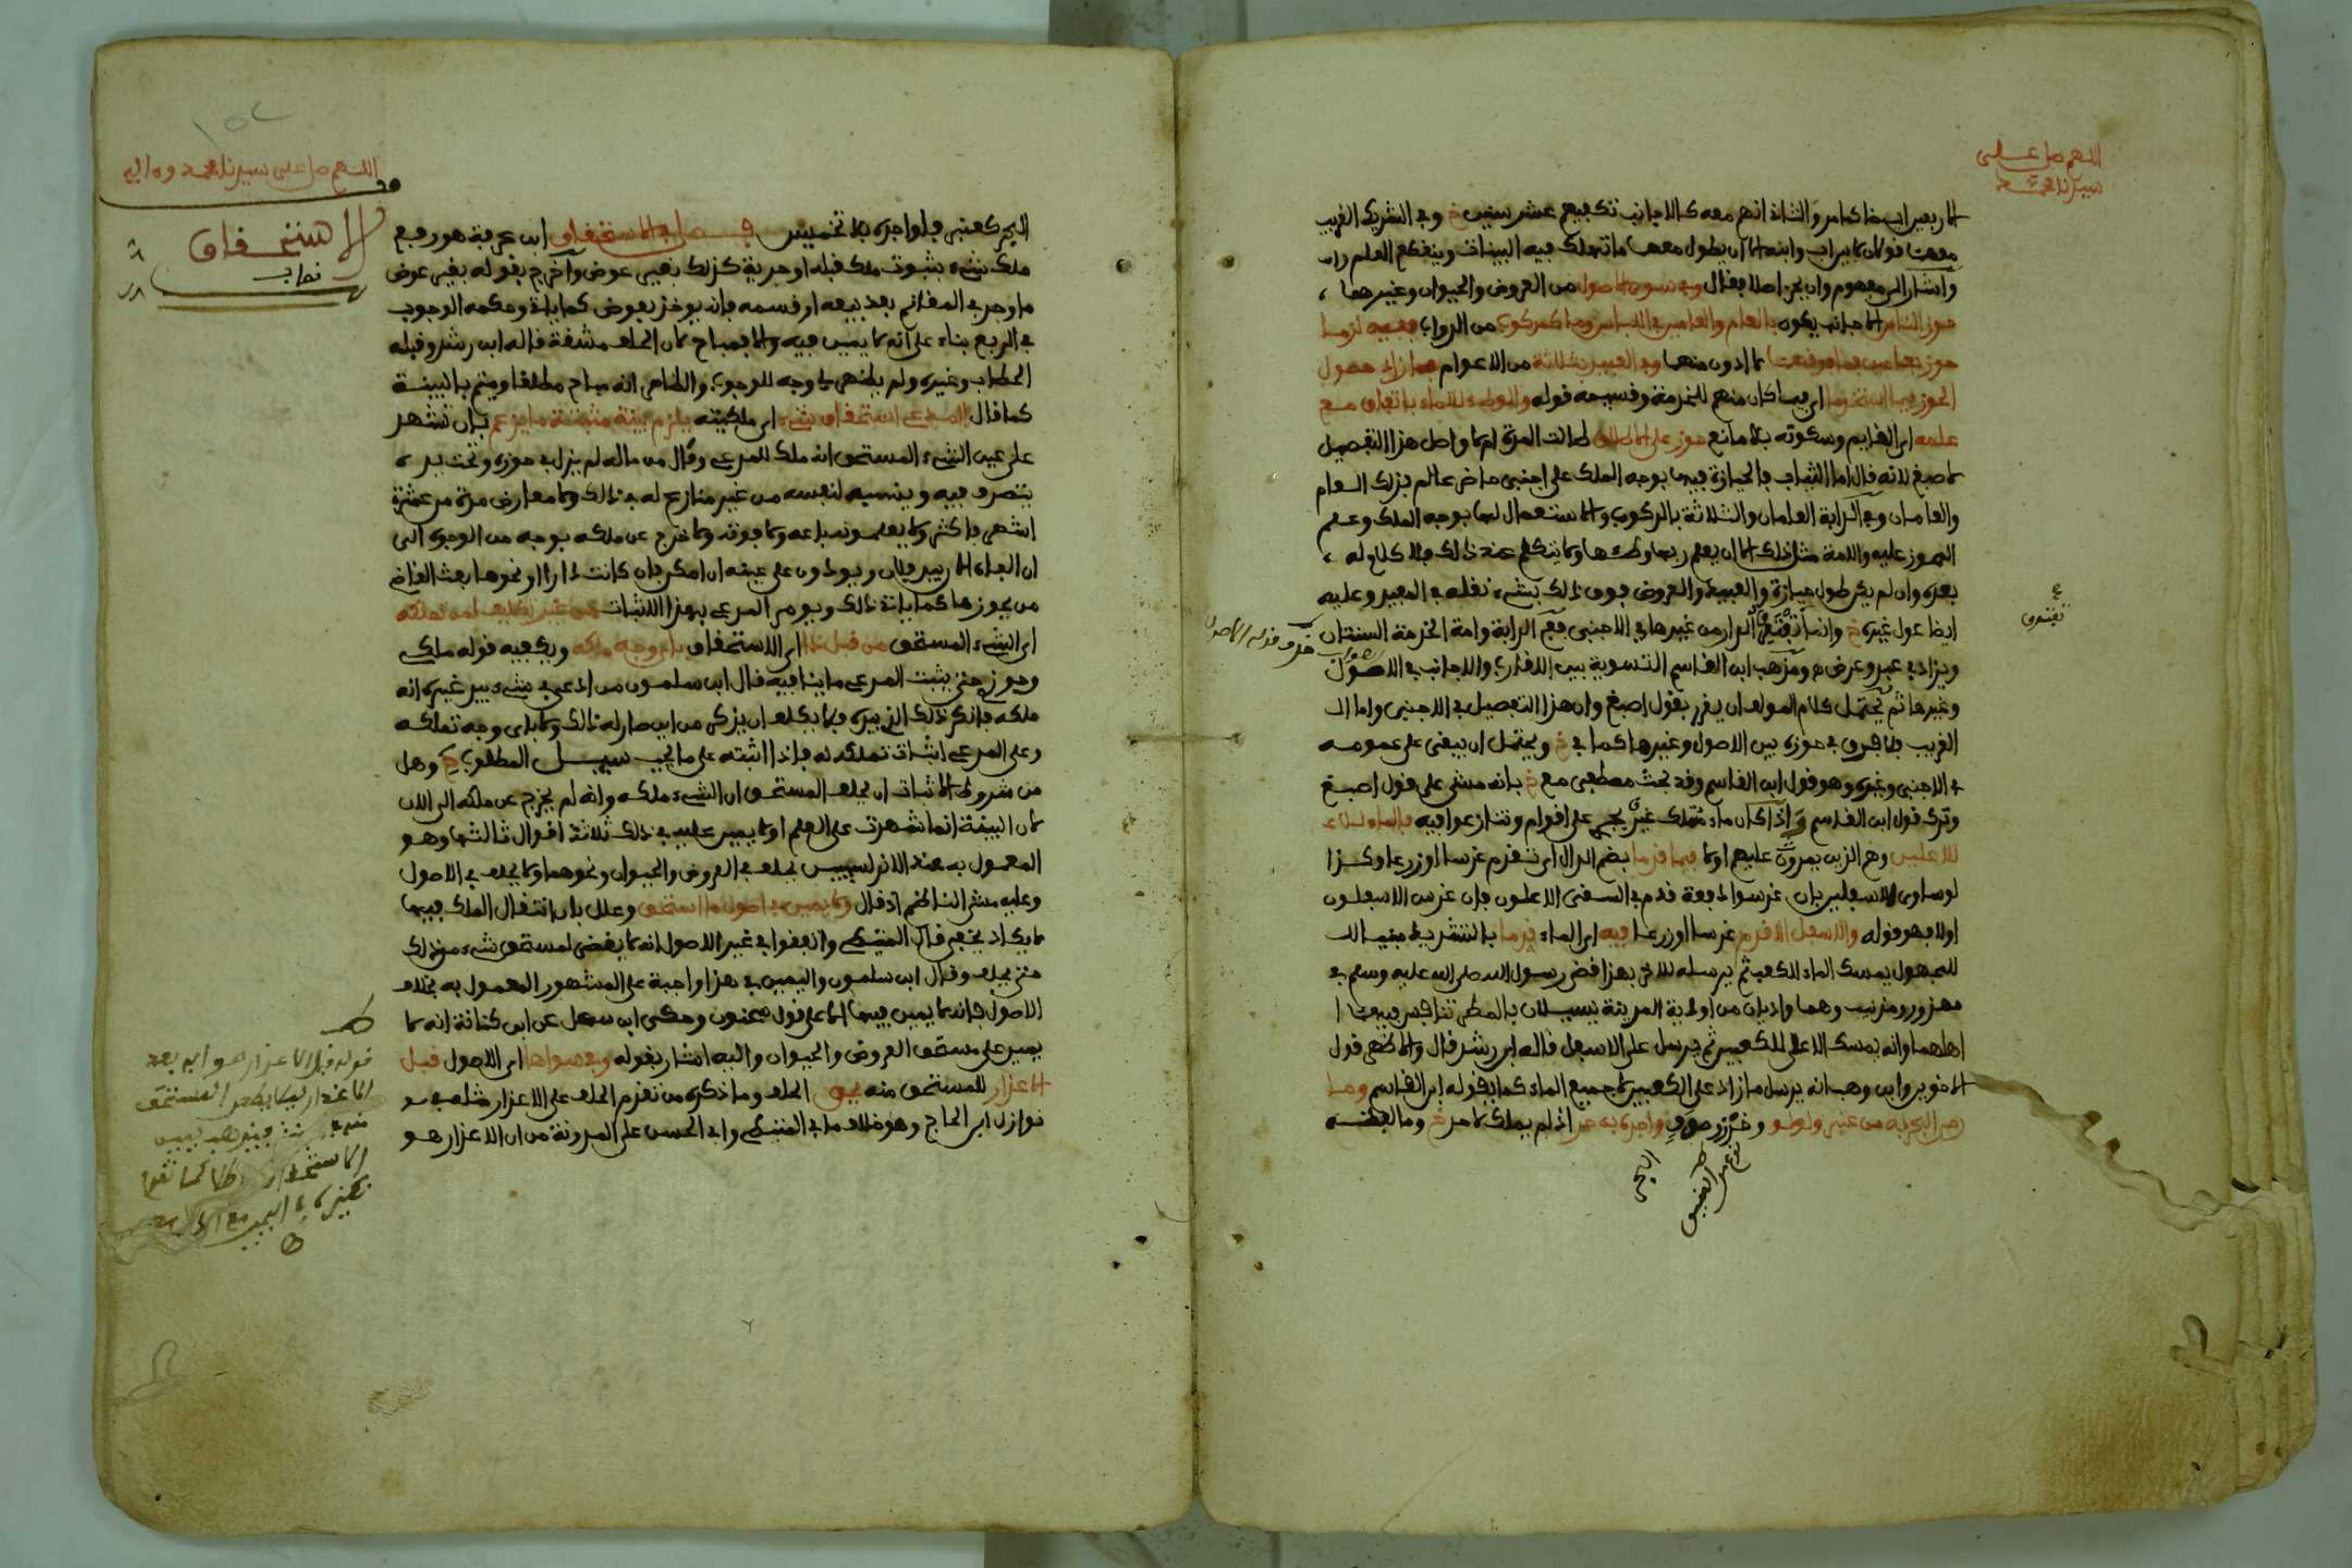 اللهم صل على
سيدنا محمد
الاربعين اب خا كما مر والثاني انهم معه كالاجانب تكفيهم عشر سنين خ وفي الشريك القريب
معهما قولان لا بين اب وابنه الا ان يطول معهما ما تهلك فيه البينات وينقطع العلم
واشار الى مفهوم وان يحز اصلا فقال وفي سوى الاصول من العروض والحيوان وغيرهما
حوز الناس الاجانب يكون بالعام والعامين في اللباس وما كمركوب من الدواب ففيه لزما
حوز بعامين فما فوقهما لا ادون منهما وفي العبيد بثلاثة من الاعوام فما زاد حصول
الحوز فيما استخدما اي فيما كان منهم للخدمة وقسيمه قوله والوطء للاماء باتفاق مع
علمه اي القايم وسكوته بلا مانع حوز على الاطلاق طالت المدة ام لا واصل هذا التفصيل
لاصبغ لانه قال اما الثياب فالحيازة فيها بوجه الملك على اجنبي حاضر عالم فذلك العام
والعامان وفي الدابة العامان والثلاثة بالركوب والاستعمال لها بوجه الملك وعلم
المحوز عليه والامة مثل ذلك الا ان يعلم ربها وطئها ولا يتكلم عند ذلك فلا كلام له
بعده وان لم يكن طول حيازة والعبيد والعروض فوق ذلك بشيء نقله في المفيد وعليه
ايضا عول غيره خ وانما تفترق الدار من غيرها في الاجنبي ففي الدابة وامة الخدمة السنتان
ويزاد في عبد وعرض ومذهب ابن القاسم التسوية بين الاقارب والاجانب في الاصول
وغيرها ثم يحتمل كلام المولف ان يقرر بقول اصبغ وان هذا التفصيل في الاجنبي واما
القريب فلا فرق في حوزه بين الاصول وغيرها كما في خ ويحتمل ان يبقى على عمومه
في الاجنبي وغيره وهو قول ابن القاسم وقد بحث مصطفى مع خ بانه مشى على قول اصبغ
وترك قول ابن القاسم واذا كان ماء متملك غير يجري على اقوام وتنازعوا فيه فالماء للا
للاعلين وهم الذين يمرون عليهم اولا فيما قدما بضم الدال اي تقدم غرسا او زرعا وكذا
لو ساوى الاسفلين بان غرسوا دفعة قدم في السقى الاعلون فان غرس الاسفلون
اولا فهو قوله والاسفل الاقدم غرسا او زرعا فيه اي الماء قدما بالتشديد مبنيا
للمجهول يمسك الماء للكعب ثم يرسله للاخر بهذا قضى رسول الله صلى الله عليه وسلم في
مهزور ومذينب وهما واديان من اودية المدينة يسيلان بالمطر تنافس فيهما
اهلهما وانه يمسك الاعلى للكعبين ثم يرسل على الاسفل قاله ابن رشد قال والاظهر قول
الاخوين وابن وهب انه يرسل ما زاد على الكعبين لا جميع الماء كما يقوله ابن القاسم وما
رمى البحر به من عنبر ولولو وواجده به حر اذ لم يملك كما مر خ وما لفظه
تفترق
اللهم صل على سيدنا محمد وءاله
الاستحقاق
البحر كعنبر فلواجده بلا تخميس فصل في الاستحقاق ابن عرفة هو رفع
ملك شيء بثبوت ملك قبله او حرية كذلك بغير عوض واخرج بقوله بغير عوض
ما وجد في المغانم بعد بيعه او قسمه فانه يوخذ بعوض كما ياتي وحكمه الوجوب
في الربع بناء على انه لا يمين فيه والا فمباح لان الحلف مشقة قاله ابن رشد وقبله
الحطاب وغيره ولم يظهر لي وجه للوجوب والظاهر انه مباح مطلقا ويتم بالبينة
كما قال المدعي استحقاق شيء اي ملكيته يلزم بينة مثبتة ما يزعم بان تشهد
على عين الشيء المستحق انه ملك للمدعي ومال من ماله لم يزل في حوزه وتحت يده
يتصرف فيه وينسبه لنفسه من غير منازع له في ذلك ولا معارض مدة من عشرة
اشهر فاكثر ولا يعلمونه باعه ولا فوته ولا خرج عن ملكه بوجه من الوجوه الى
ان الفاه الان بيد فلان ويودون على عينه ان امكن فان كانت دارا او نحوها بعث القاضي
من يحوزها كما ياتي ذلك ويومر المدعي بهذا الاثبات من غير تكليف لمن تملكه
اي الشيء المستحق من قبل ذا اي الاستحقاق باي وجه ملكه ويكفيه قوله ملكي
وحوزي حتى يثبت المدعي ما ينافيه قال ابن سلمون من ادعى في شيء بيد غيره انه
ملكه فانكر ذلك الذي بيده فلا يكلف ان يذكر من اين صار له ذلك ولا باي وجه تملكه
وعلى المدعي اثبات تملكه له فاذا اثبته على ما يجب سيل المطلوب خ وهل
من شروط الاثبات ان يحلف المستحق ان الشيء ملكه وانه لم يخرج عن ملكه الى الان
لان البينة انما شهدت على العلم او لا يمين عليه في ذلك ثلاثة اقوال ثالثها وهو
المعمول به عند الاندلسيين يحلف في العروض والحيوان ونحوهما ولا يحلف في الاصول
وعليه مشى الناظم اذ قال ولا يمين في اصول ما استحق وعلل بان انتقال الملك فيها
لا يكاد يخفى قال المتيطي واتفقوا في غير الاصول انه لا يقضى لمستحق شيء من ذلك
حتى يحلف وقال ابن سلمون واليمين في هذا واجبة على المشهور المعمول به بخلاف
الاصول فانه لا يمين فيها الا على قول سحنون وحكى ابن سهل عن ابن كنانة انه لا
يمين على مستحق العروض والحيوان واليه اشار بقوله وفي سواها اي الاصول قبل
الاعذار للمستحق منه يحق الحلف وما ذكره من تقدم الحلف على الاعذار مثله في
نوازل ابن الحاج وهو خلاف ما في المتيطي وابي الحسن على المدونة من ان الاعذار هو
قوله قبل الاعذار هو اي بعد